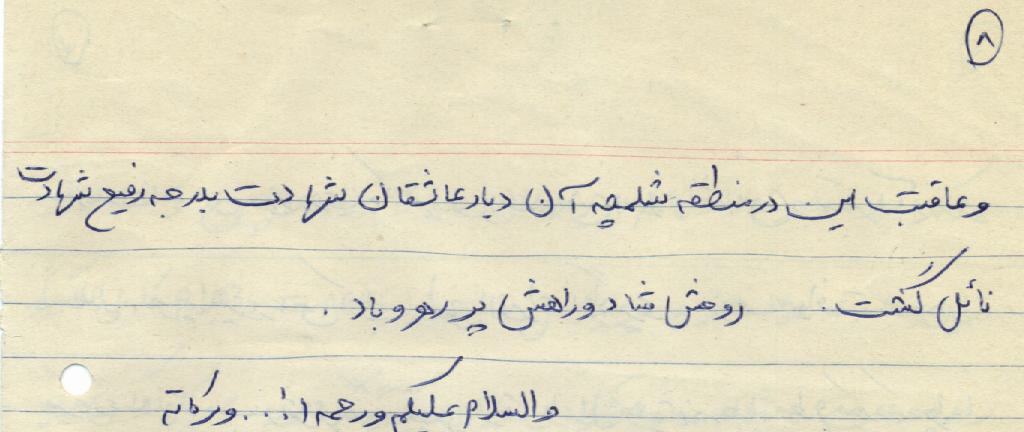 ۸
و عاقبت این در منطقه شلمچه آن دیار عاشقان شهادت بدرجه رفیع شهادت
نائل گشت. روحش شاد و راهش پر رهرو باد.
والسلام علیکم و رحمه ا... و برکاته